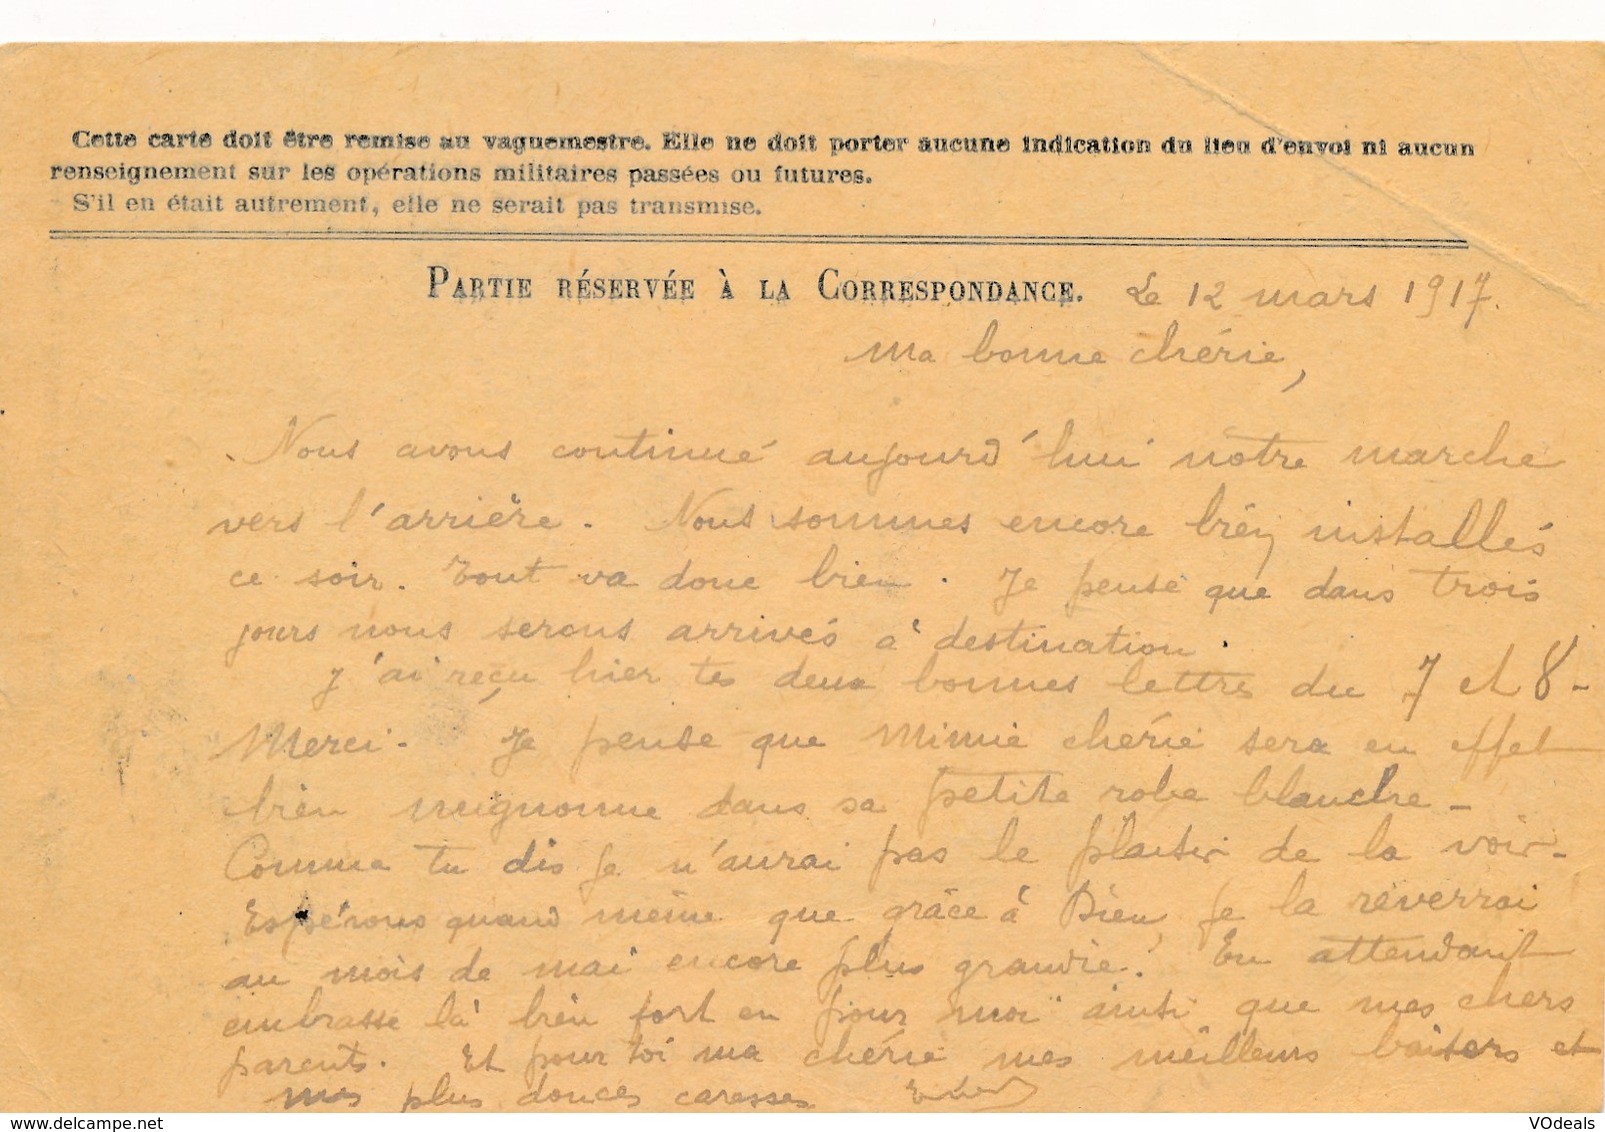 Cette carte doit être remise au vaguemestre. Elle ne doit porter aucune indication du lieu d'envoi ni aucun
renseignement sur les opérations militaires passées ou futures.
S'il en était autrement, elle ne serait pas transmise.
PARTIE RÉSERVÉE À LA CORRESPONDANCE. Le 12 mars 1917.
Ma bonne chérie,
Nous avons continué aujourd'hui notre marche
vers l'arrière. Nous sommes encore bien installés
ce soir. Tout va donc bien. Je pense que dans trois
jours nous serons arrivés à destination.
J'ai reçu hier tes deux bonnes lettres du 7 et 8-
Merci. Je pense que Mimie chérie sera en effet
bien mignonne dans sa petite robe blanche-
Comme tu dis je n'aurai pas le plaisir de la voir-
Espérons quand même que grâce à Dieu, je la reverrai
au mois de mai encore plus grandie. En attendant
embrasse la bien fort en pour moi ainsi que mes chers
parents. Et pour toi ma chérie mes meilleurs baisers et
mes plus douces caresses
VOdeals